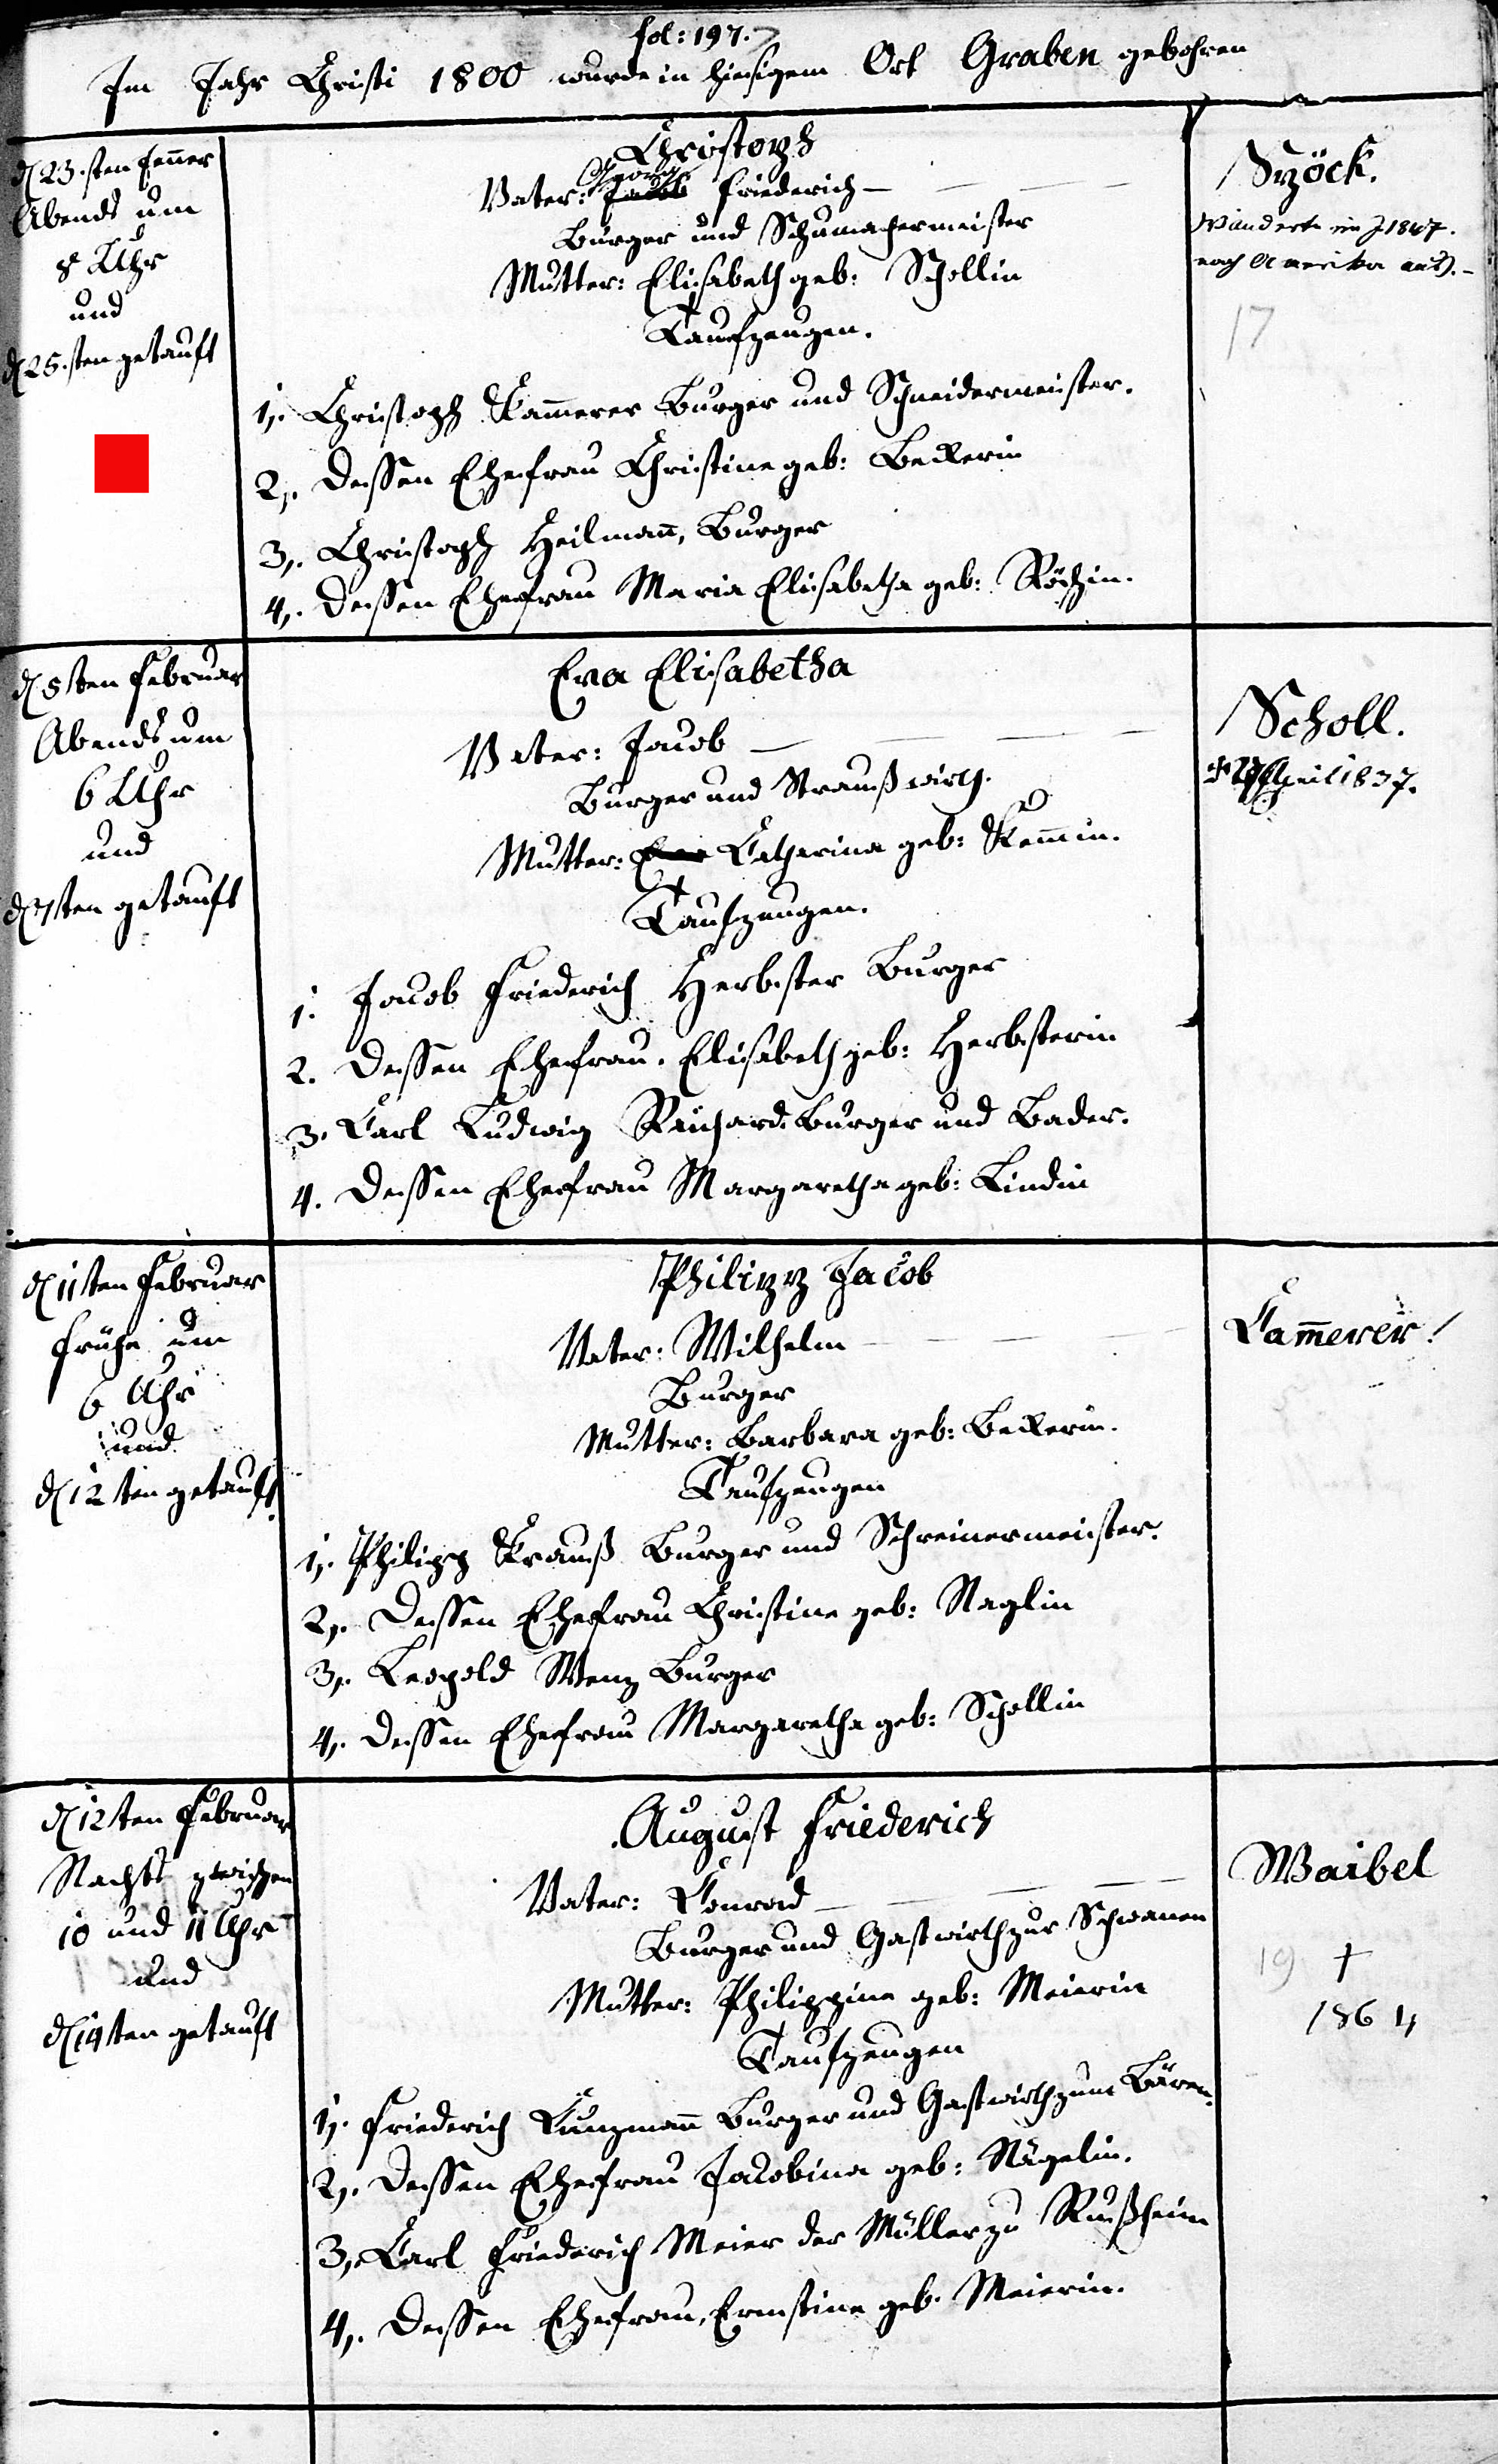 fol: 197.
Im Jahr Christi 1800 wurde in hiesigem Ort Graben gebohren
d 23.sten Jenner
Abends um
8 Uhr
und
d 25.sten getauft
Christoph
Georg
Vater: Jacob Friederich
Burger und Schumachermeister
Mutter: Elisabeth geb: Schollin
Taufzeugen.
1,. Christoph Kammerer Burger und Schneidermeister.
2,. Dessen Ehefrau Christine geb: Beckerin
3,. Christoph Heilmann, Burger
4,. Dessen Ehefrau Maria Elisabetha geb:
Spöck.
Wanderte im J. 1847.
nach Amerika aus. -
17
d 5ten Februar
Abends um
6 Uhr
und
d 7ten getauft
Eva Elisabetha
Vater: Jacob
Burger und Straußwirth.
Mutter: Catharina geb: Kemmin.
Taufzeugen.
1. Jacob Friederich Herbster Burger
2. Dessen Ehefrau. Elisabeth geb: Herbsterin
3. Carl Ludwig Reichard Burger und Bader.
4. Dessen Ehefrau Margaretha geb: Lindin
Scholl.
April 1837.
d 11ten Februar
frühe um
6 Uhr
und
d 12ten getauft.
Philipp Jacob
Vater: Wilhelm
Burger
Mutter: Barbara geb: Beckerin.
Taufzeugen
1,. Philipp Krauß Burger und Schreinermeister.
2,. Dessen Ehefrau Christine geb: Naglin
3,. Leopold Wenz Burger
4,. Dessen Ehefrau Margaretha geb: Schollin
Cammerer!
d 12ten Februar
Nachts zwischen
10 und 11 Uhr
und
d 14ten getauft
August Friederich
Vater: Conrad
Burger und Gastwirth zur Schwanen
Mutter: Philippina geb: Meierin
Taufzeugen
1,. Friederich Kunzmann Burger und Gastwirth zum Bären.
2,. Dessen Ehefrau Jacobina geb: Nägelin.
3,. Carl Friederich Meier der Müller zu Rußheim
4,. Dessen Ehefrau, Ernstina geb. Meierin.
Waibel
19 †
1864